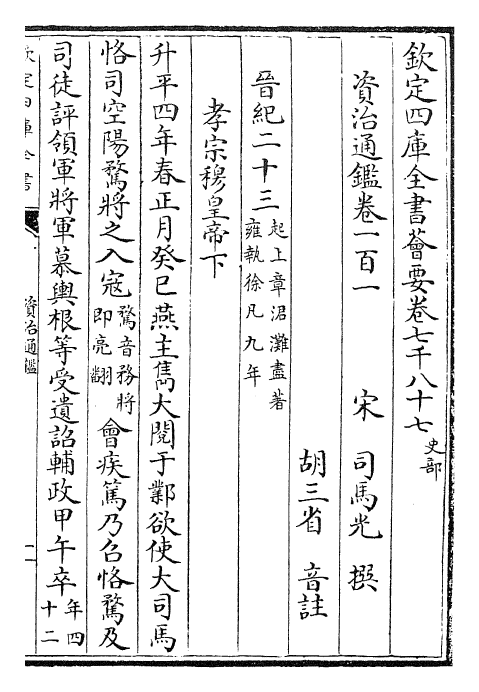 欽定四庫全書薈要卷七千八十七史部
資治通鑑卷一百一
宋 司馬光 撰
胡三省 音註
晉紀二十三起上章涒灘盡著雍執徐凡九年
孝宗穆皇帝下
升平四年春正月癸巳燕主儁大閱于鄴欲使大司馬
恪司空陽騖將之入寇騖音務將即亮翻會疾篤乃召恪騖及
司徒評領軍將軍慕輿根等受遺詔輔政甲午卒年四十二
欽定四庫全書
資治通鑑
一